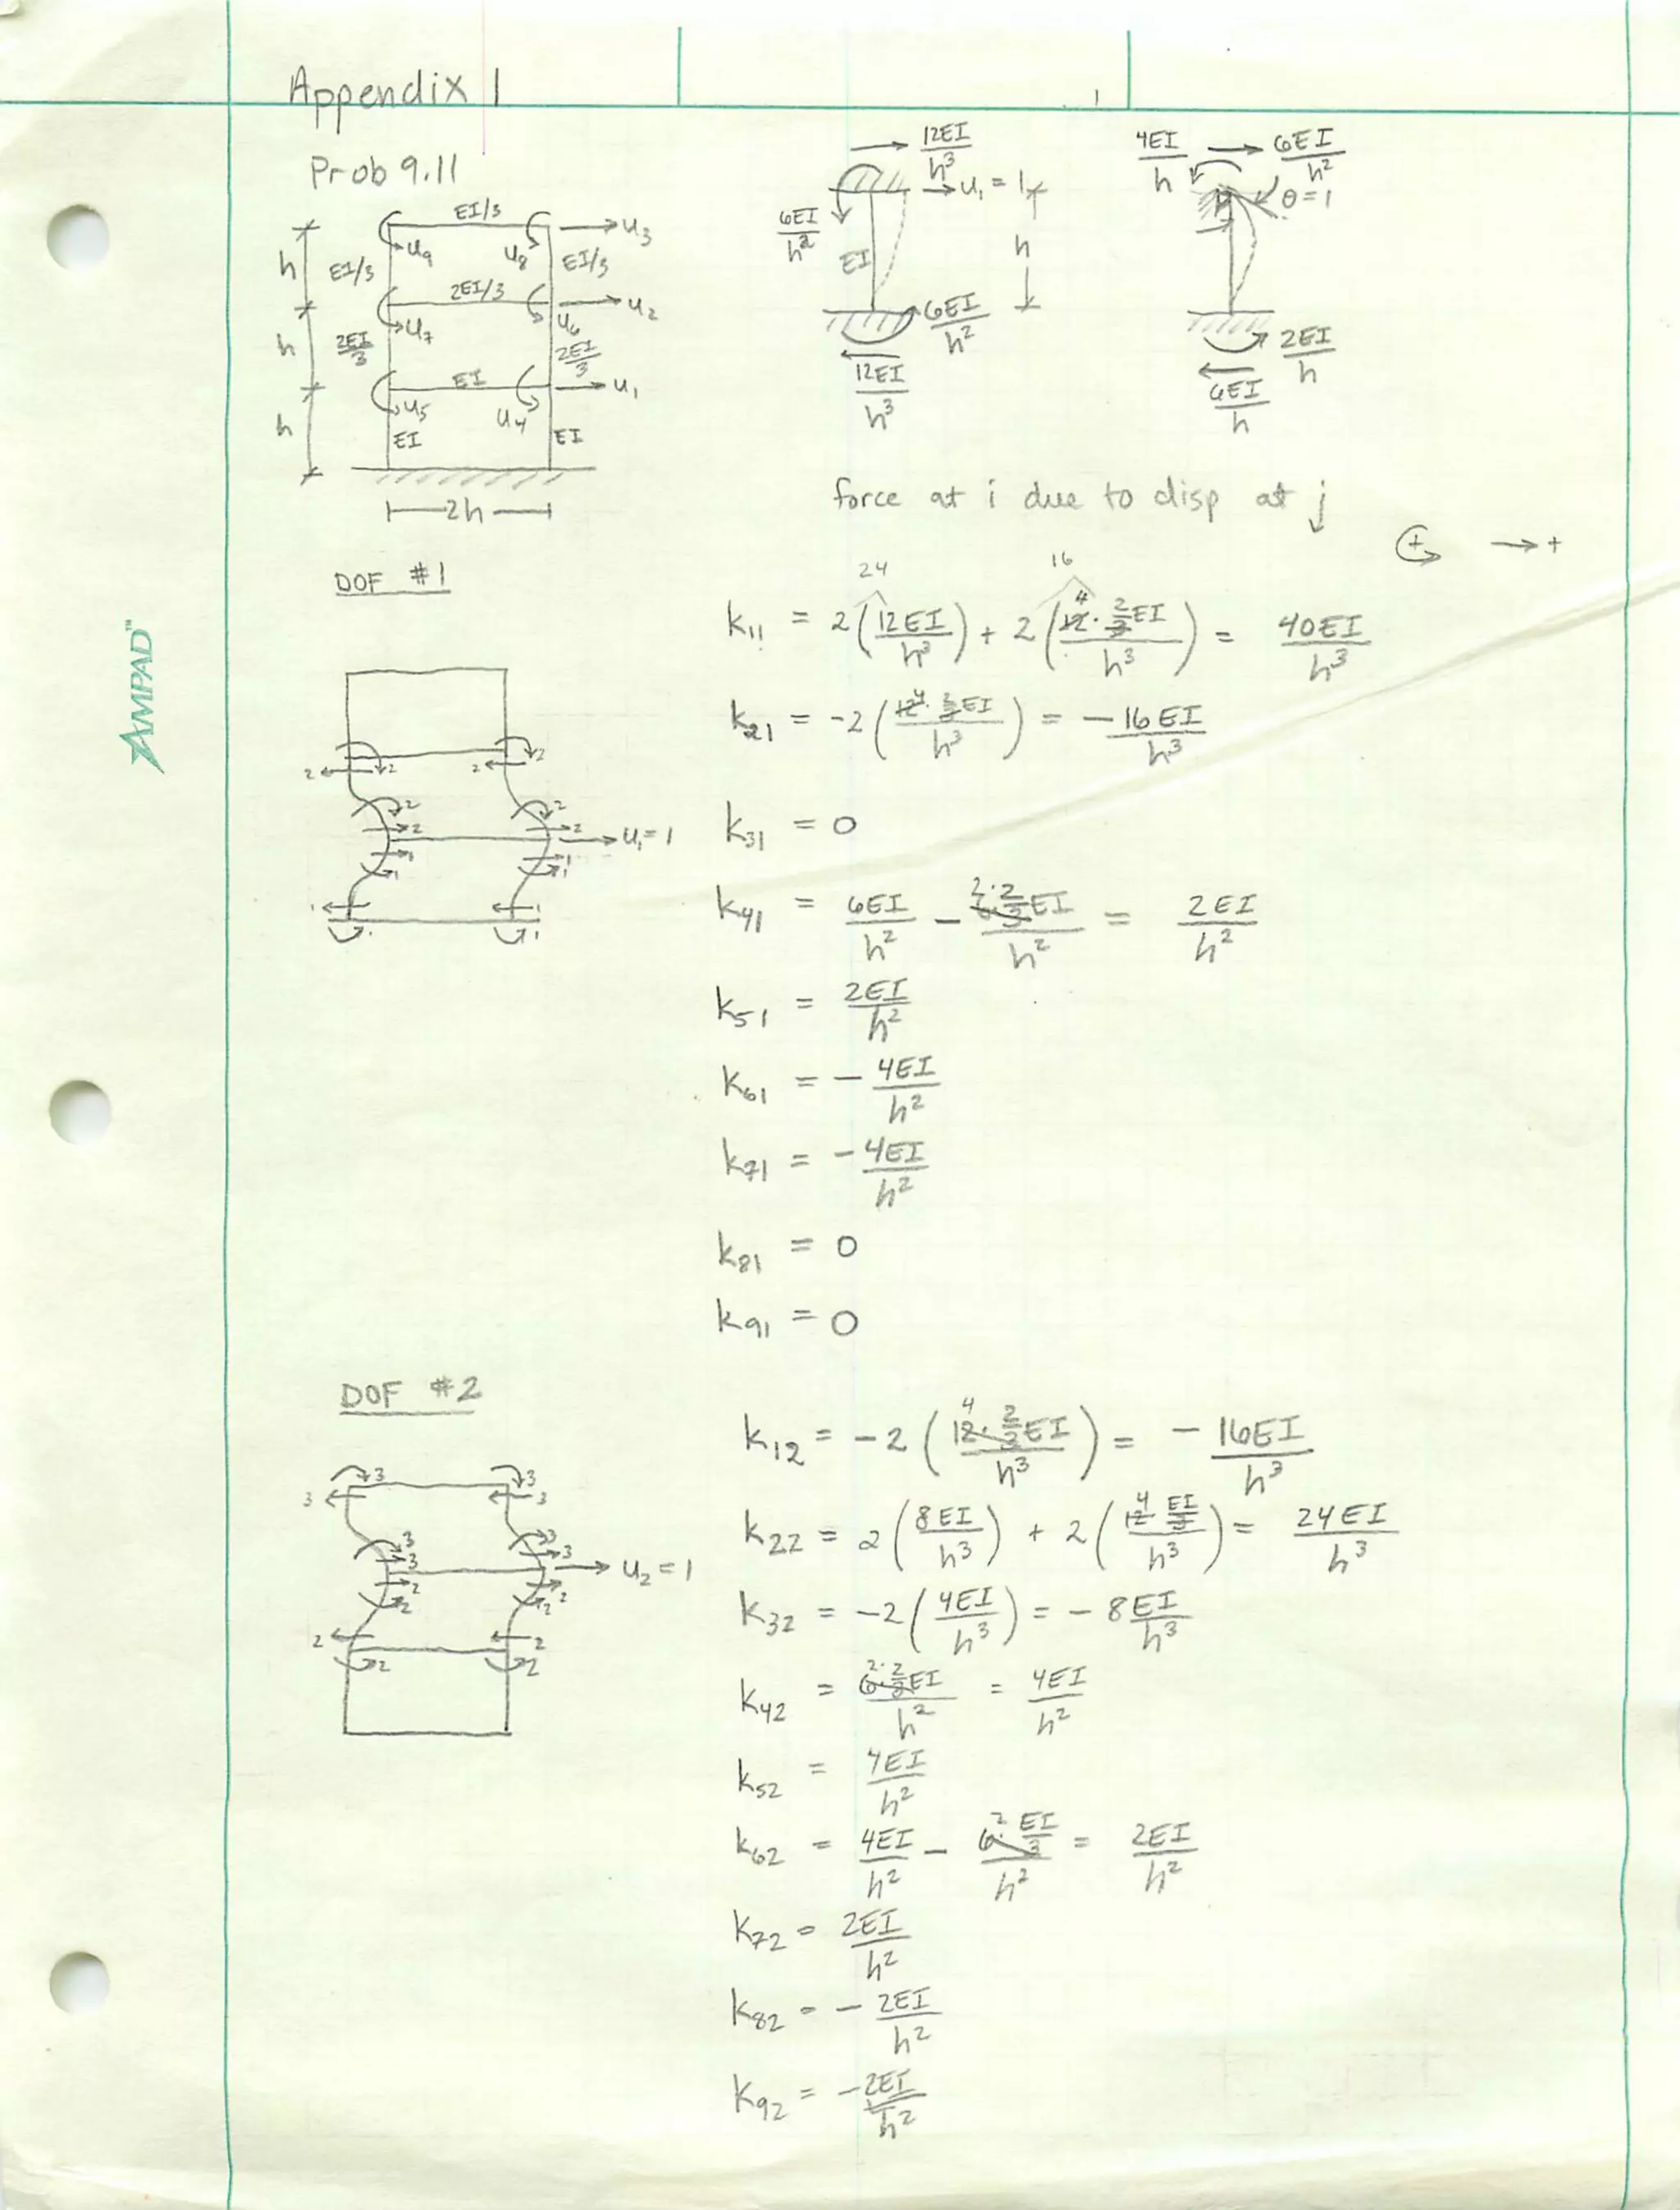 Appendix 1
Prob 9.11
EI/3
u₃
u₉
u₈
h
EI/3
EI/3
2EI/3
u₂
u₇
u₆
h
2EI/3
2EI/3
EI
u₁
u₅
u₄
h
EI
EI
2h
12EI/h³
u₁ = 1
6EI/h²
EI
h
6EI/h²
12EI/h³
4EI/h
6EI/h²
θ = 1
2EI/h
6EI/h
force at i due to disp at j
+ → +
AMPAD™
DOF #1
2 2 2 2
2 2 2 2
u₁ = 1
1 1 1 1
1 1 1
24 16
k₁₁ = 2(12EI/h³) + 2(12⁴·⅔EI/h³) = 40EI/h³
k₂₁ = -2(12⁴·⅔EI/h³) = -16EI/h³
k₃₁ = 0
k₄₁ = 6EI/h² - 6²·⅔EI/h² = 2EI/h²
k₅₁ = 2EI/h²
k₆₁ = -4EI/h²
k₇₁ = -4EI/h²
k₈₁ = 0
k₉₁ = 0
DOF #2
3 3 3 3
3 3 3 3
u₂ = 1
2 2 2 2
2 2 2 2
k₁₂ = -2(12⁴·⅔EI/h³) = -16EI/h³
k₂₂ = 2(8EI/h³) + 2(12⁴ EI/3/h³) = 24EI/h³
k₃₂ = -2(4EI/h³) = -8EI/h³
k₄₂ = 6²·⅔EI/h² = 4EI/h²
k₅₂ = 4EI/h²
k₆₂ = 4EI/h² - 6²·EI/3/h² = 2EI/h²
k₇₂ = 2EI/h²
k₈₂ = -2EI/h²
k₉₂ = -2EI/h²